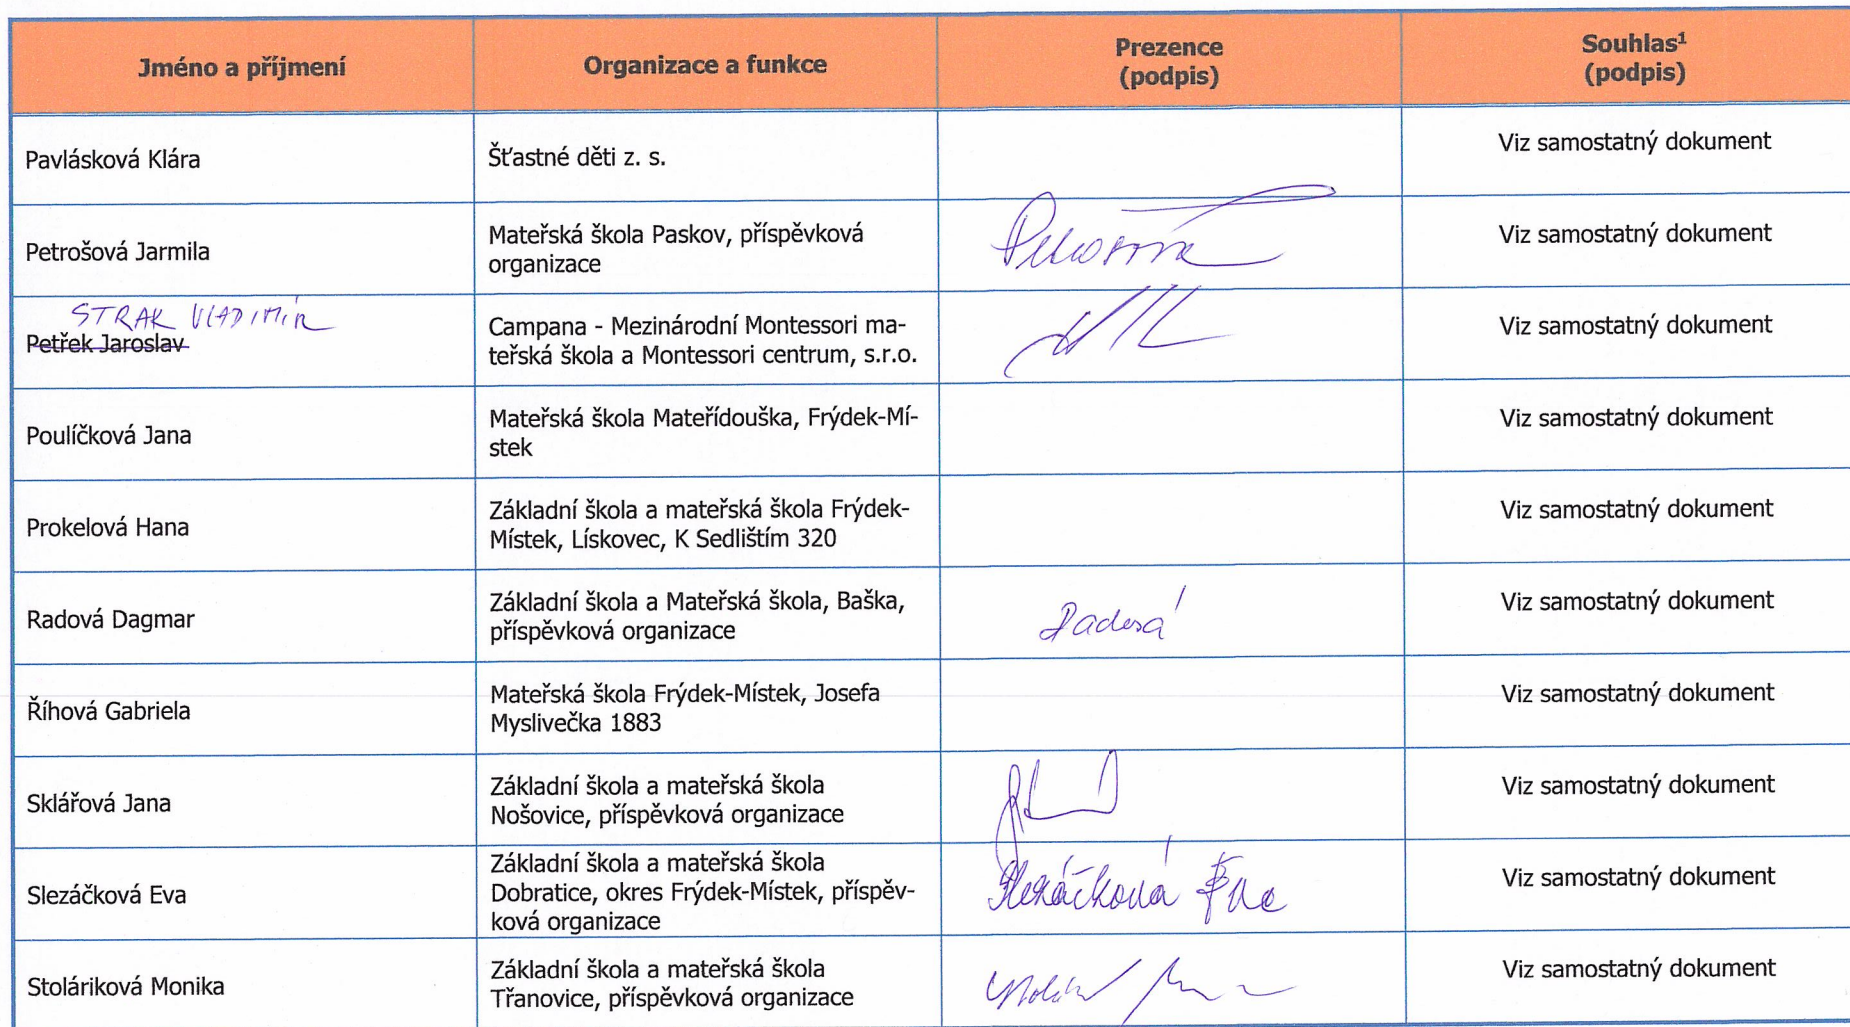 Jméno a příjmení
Organizace a funkce
Prezence
(podpis)
Souhlas¹
(podpis)
Pavlásková Klára
Šťastné děti z. s.
Viz samostatný dokument
Petrošová Jarmila
Mateřská škola Paskov, příspěvková
organizace
Petrošová
Viz samostatný dokument
STRAK VLADIMÍR
Petřek Jaroslav
Campana - Mezinárodní Montessori ma-
teřská škola a Montessori centrum, s.r.o.
Viz samostatný dokument
Poulíčková Jana
Mateřská škola Mateřídouška, Frýdek-Mí-
stek
Viz samostatný dokument
Prokelová Hana
Základní škola a mateřská škola Frýdek-
Místek, Lískovec, K Sedlištím 320
Viz samostatný dokument
Radová Dagmar
Základní škola a Mateřská škola, Baška,
příspěvková organizace
Radová
Viz samostatný dokument
Říhová Gabriela
Mateřská škola Frýdek-Místek, Josefa
Myslivečka 1883
Viz samostatný dokument
Sklářová Jana
Základní škola a mateřská škola
Nošovice, příspěvková organizace
Viz samostatný dokument
Slezáčková Eva
Základní škola a mateřská škola
Dobratice, okres Frýdek-Místek, příspěv-
ková organizace
Slezáčková Eva
Viz samostatný dokument
Stoláriková Monika
Základní škola a mateřská škola
Třanovice, příspěvková organizace
Viz samostatný dokument